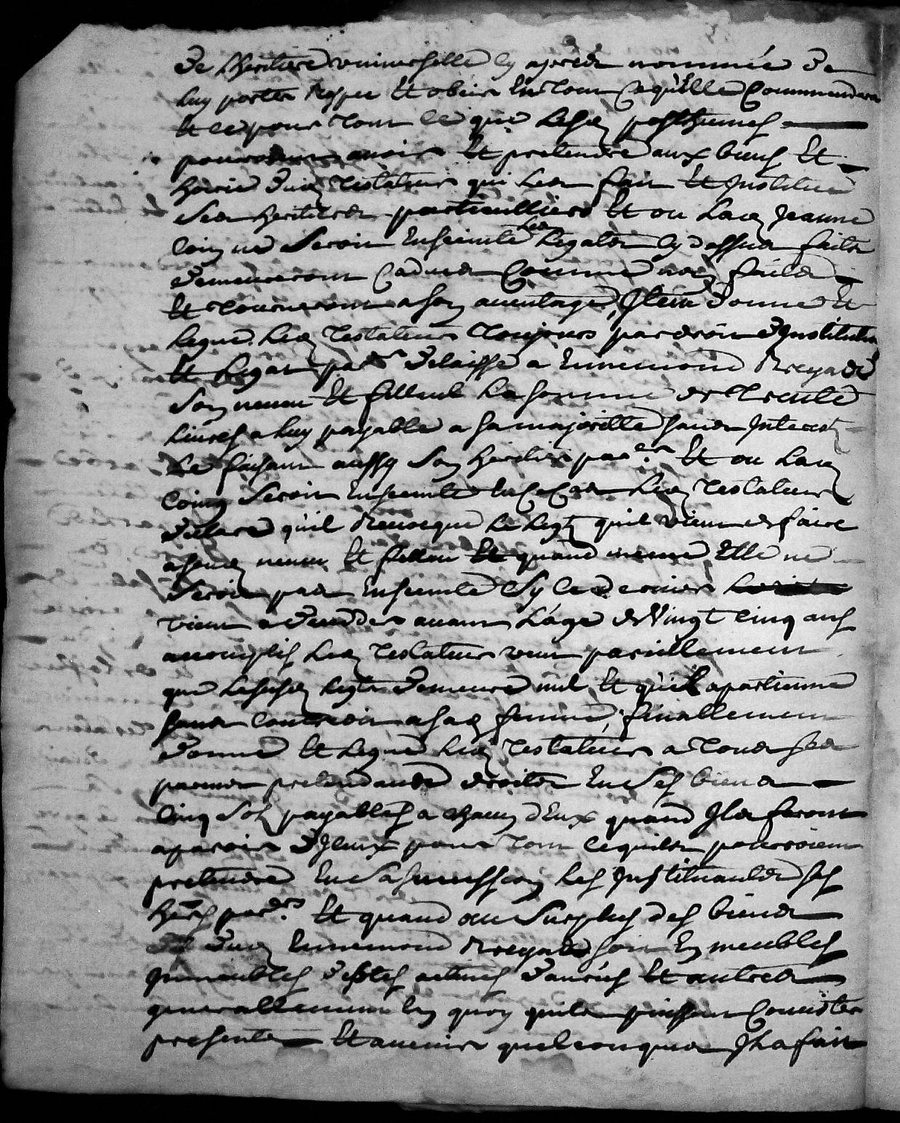 de Lheritiere universelle cy apres nommée de
luy porter respec et obeir en tout ce quelle commendera
et ce pour tout ce que lesd posthumes
pourroient avoir et pretendre aux biens et
hoirie dud testateur qui les fait et institue
ses heritiers particulliers et ou lad Jeanne
Coing ne seroit enseinte les legats cy dessus faits
demeureront caducs comme non faits
et tourneront a son avantage, Item donne et
legue led testateur toujours par droit dinstitution
et legat par.re delaisse a Ennemond Reynde
son neveu et filleul la somme de trente
livres a luy payable a sa majoritte sans interest
le faisant aussy son heritier par.er et ou lad
Coing seroit enseinte led testateur
declare quil revoque le legt quil vient de faire
a soud neveu et filleul et quand mesme elle ne
seroit pas enseinte sy ce dernier
vient a deceder avant l'age de vingt cinq ans
accomplis led testateur veut pareillement
que lesusd legt demeure nul et quil apartienne
sans contredit a sad femme, finallement
donne et legue led testateur a tous ses
parens pretendants droits en ses biens
cinq sols payables a chacun d'eux quand Ils feront
aparoir d'Iceux pour tout ce quils pourroient
pretendre en sa succession les instituants ses
hers par.ers et quand au surplus des biens
dud Ennemond Reynde soit en meubles
immeubles dettes actives danrées et autres
generallement en quoy quils puissent consister
presents et avenir quelconques Il a fait